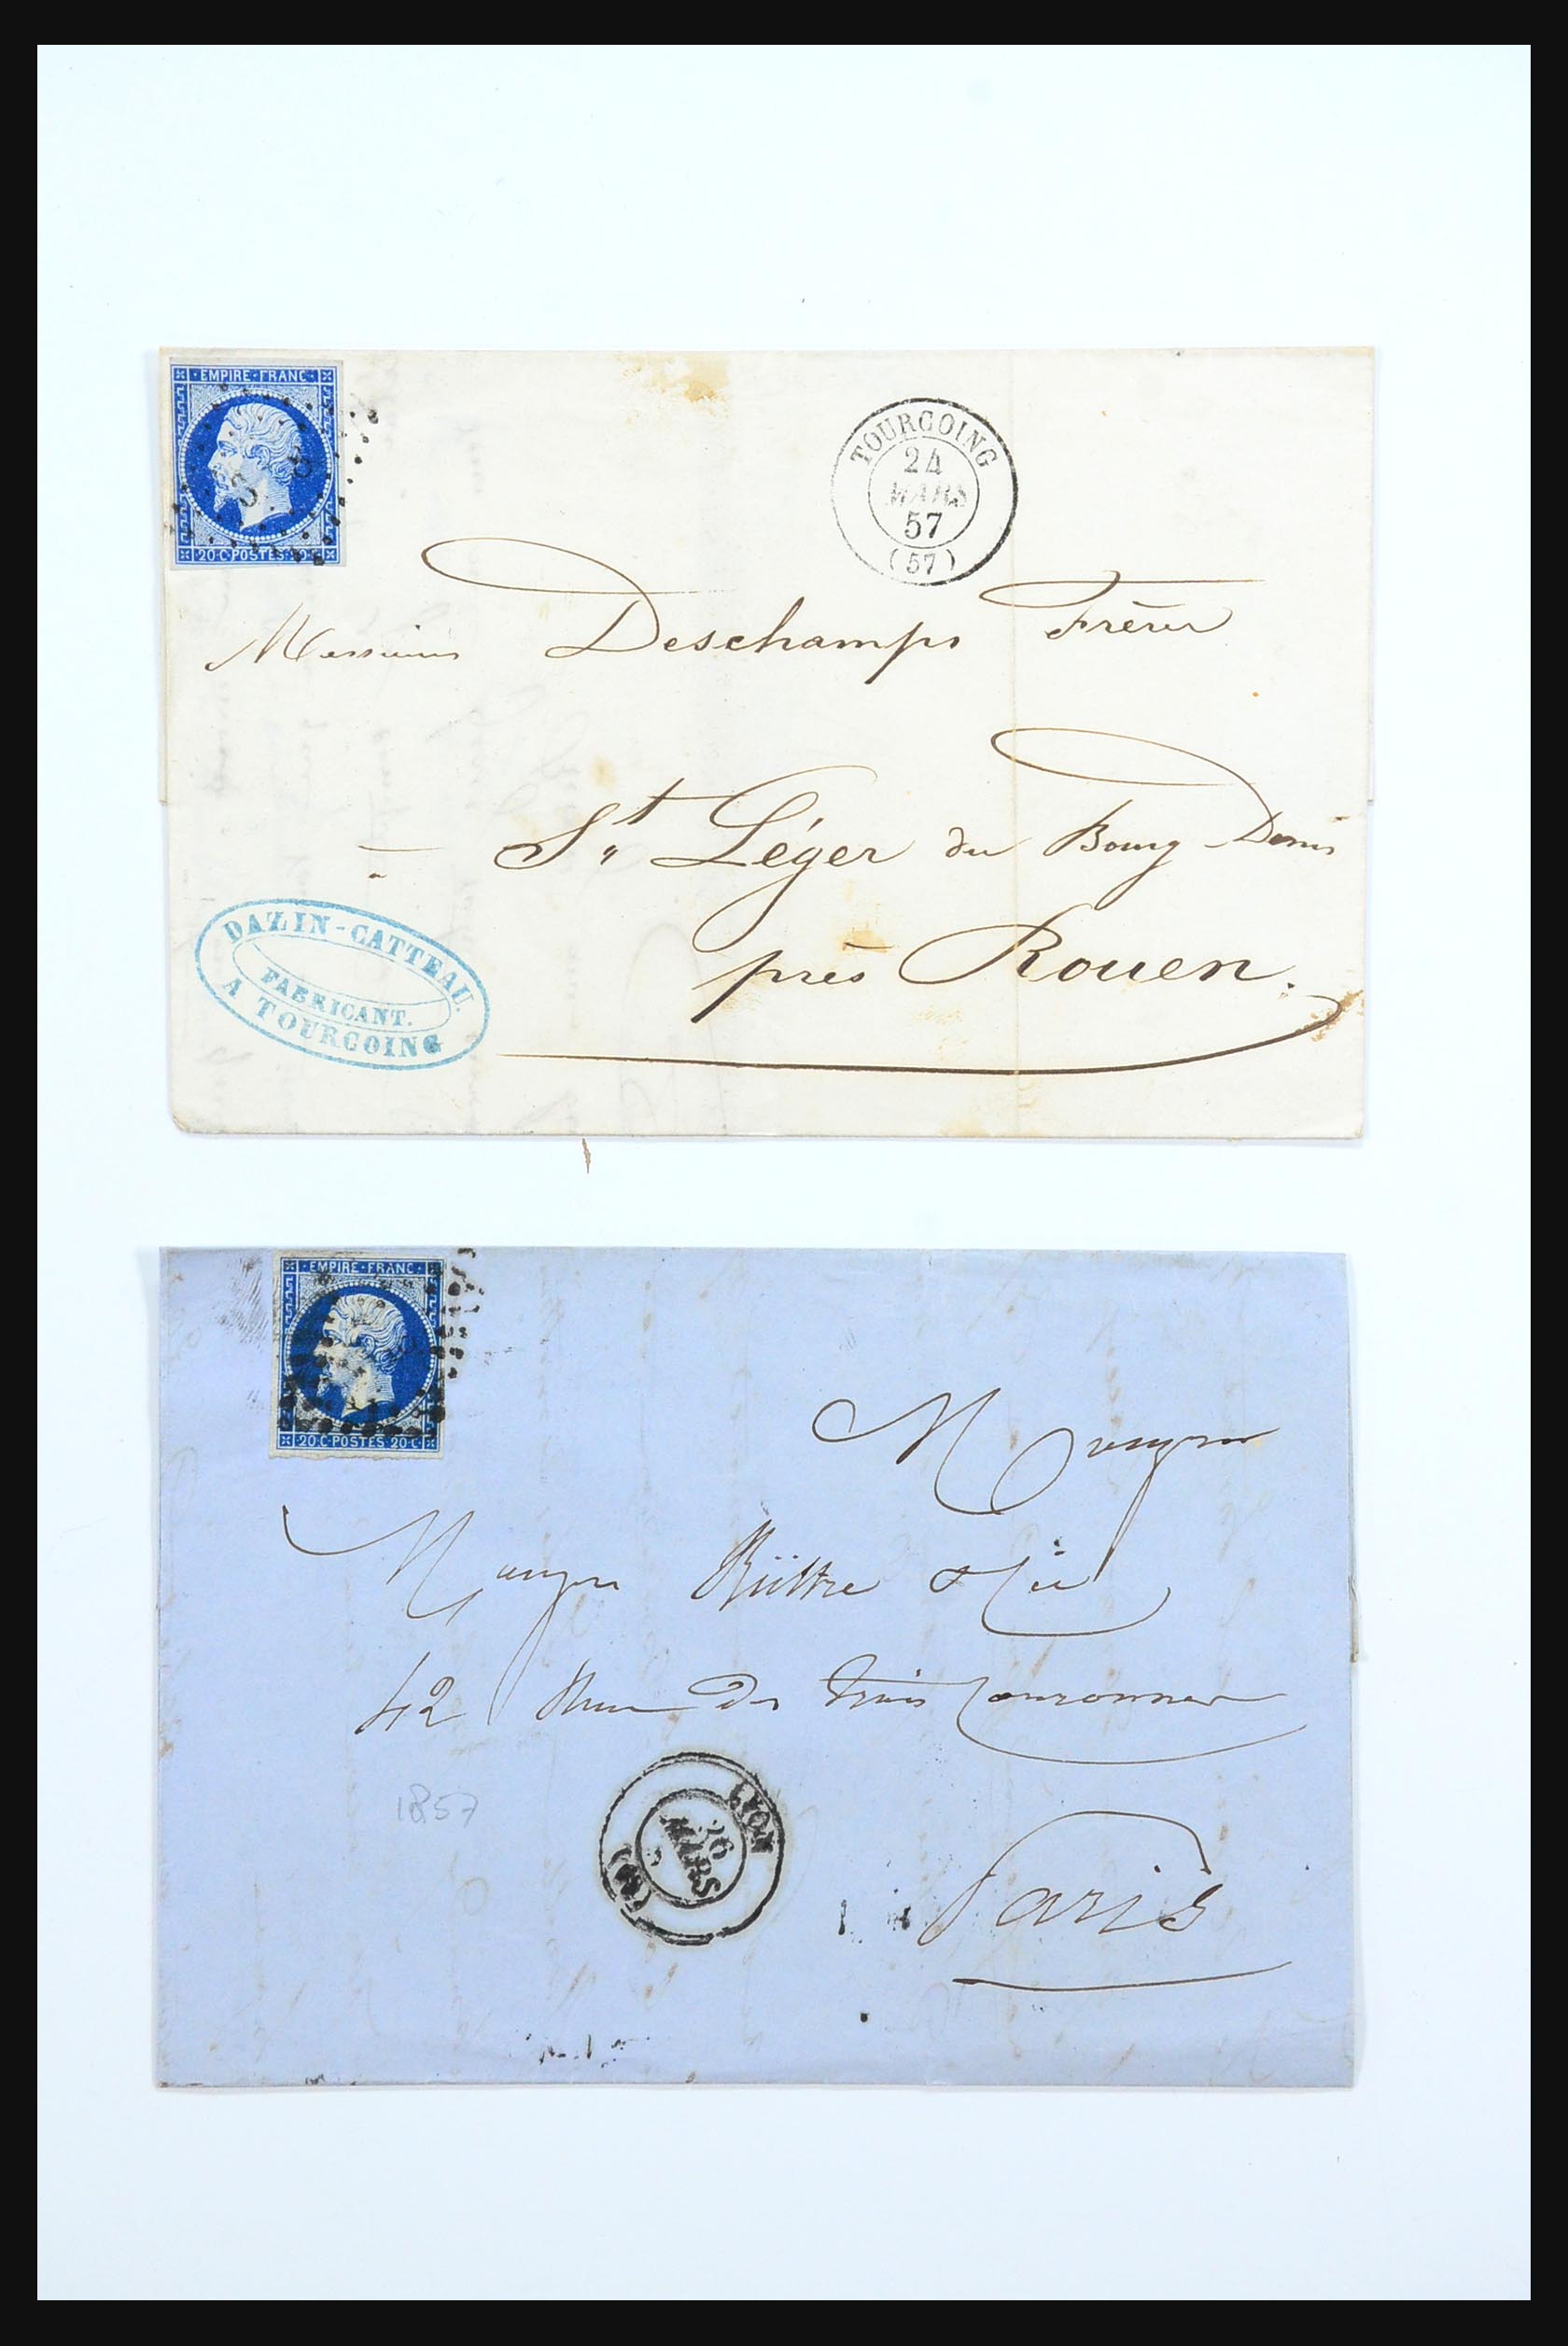 EMPIRE·FRANC·
20·C·POSTES·20·C
TOURCOING
24
MARS
57
(57)
Messieurs Deschamps Frères
St Léger du Bourg-Denis
près Rouen.
DAZIN-CATTEAU.
FABRICANT.
A TOURCOING
EMPIRE·FRANC·
20·C·POSTES·20·C·
42 Rue des trois Couronnes
1857
LYON
26
MARS
Paris